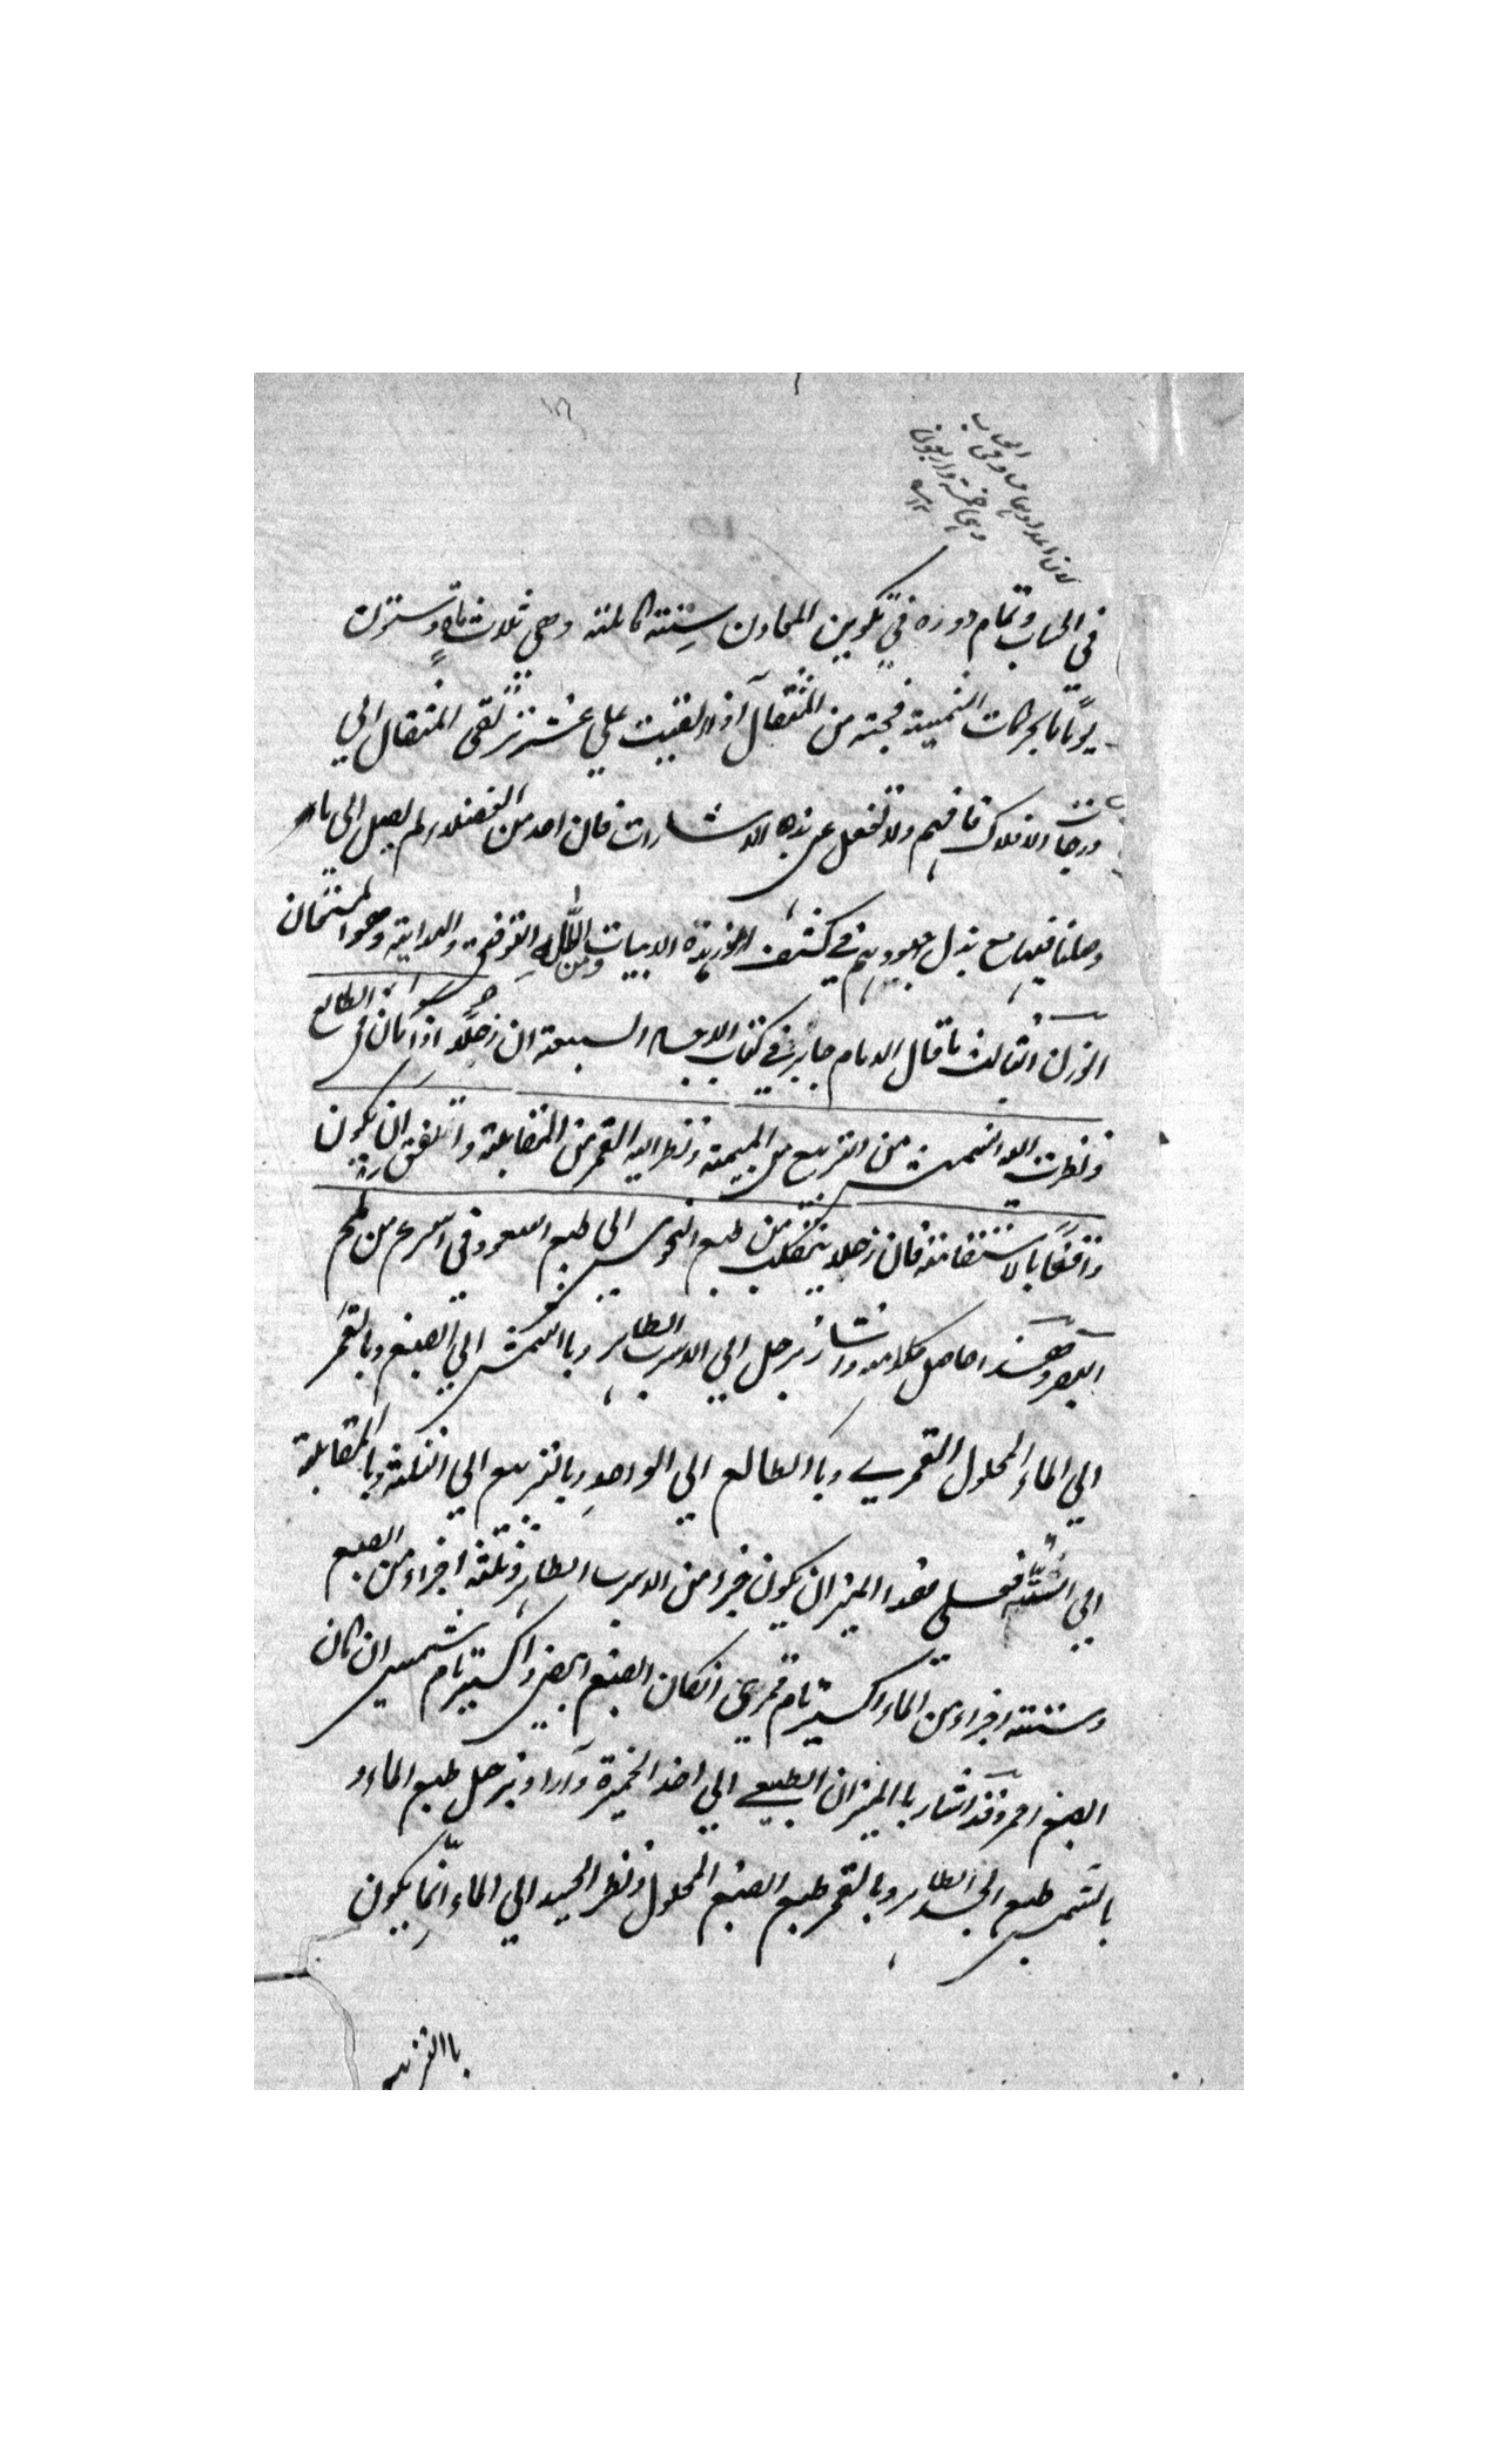 في الحساب وتمام دوره في تكوين المعادن سنة كاملة وهي ثلاث مائة وستون
يوما بالحركات الشمسية فحبة من المثقال اذا القيت علي عشر ترتقى المثقال الي
درجات الافلاك فافهم ولا تغفل عن هذه الاشارات فان احد من الفضلاء لم يصل الى ما
وصلنا فيها مع بذل جهودهم في كشف رموز هذه الابيات ومن الله التوفيق والهداية وهو المستعان
الوزن الثالث ما قال الامام جابر في كتاب الاجساد السبعة ان زحلا اذا كان في الطالع
ونظرت اليه الشمس من التربيع من الميمنة ونظر اليه القمر من المقابلة واتفق ان يكون
واقفا بالاستقامة فان زحلا ينقلب من طبع النحوس الى طبع السعود في اسرع من لمح
البصر وهذا حاصل كلامه واشار بزحل الي الاسرب الطاهر وبا الشمس الي الصبغ وبالقمر
الي الماء المحلول القمري وبا الطالع الي الواحد وبالتربيع الي الثلثة وبا المقابلة
الي الستة فعلى هذا الميزان يكون جزء من الاسرب الطاهر وثلثة اجزاء من الصبغ
وستة اجزاء من الماء اكسير تام قمري انكان الصبغ ابيض واكسير تام شمسي ان كان
الصبغ احمر وقد اشار با الميزان الطبيعي الي اخذ الخميرة واراد بزحل طبع الماء و
بالشمس طبع الجسد الطاهر وبالقمر طبع الصبغ المحلول ونظر الجسد الي الماء انما يكون
با التربيع